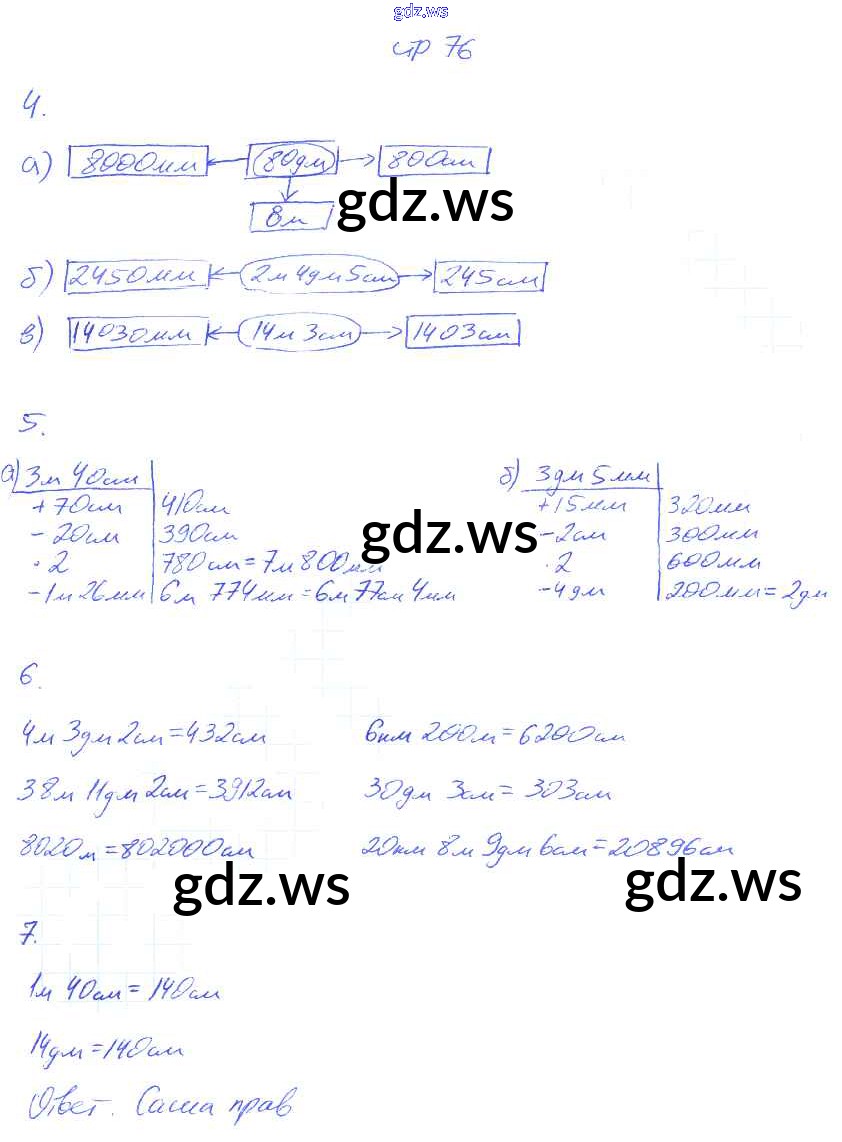 gdz.ws
стр 76
4.
а) 8000мм 80дм 800см
8м
gdz.ws
б) 2450мм 2м 4дм 5см 245см
в) 14030мм 14м 3см 1403см
5.
а) 3м 40см
+70см 410см
-20см 390см
·2 780см=7м800мм
-1м26мм 6м 774мм=6м77см4мм
б) 3дм 5мм
+15мм 320мм
-2см 300мм
·2 600мм
-4дм 200мм=2дм
gdz.ws
6.
4м 3дм 2см=432см 6км 200м=6200см
38м 11дм 2см=3912см 30дм 3см=303см
8020м=802000см 20км 8м 9дм 6см=20896см
gdz.ws gdz.ws
7.
1м 40см=140см
14дм=140см
Ответ. Саша прав